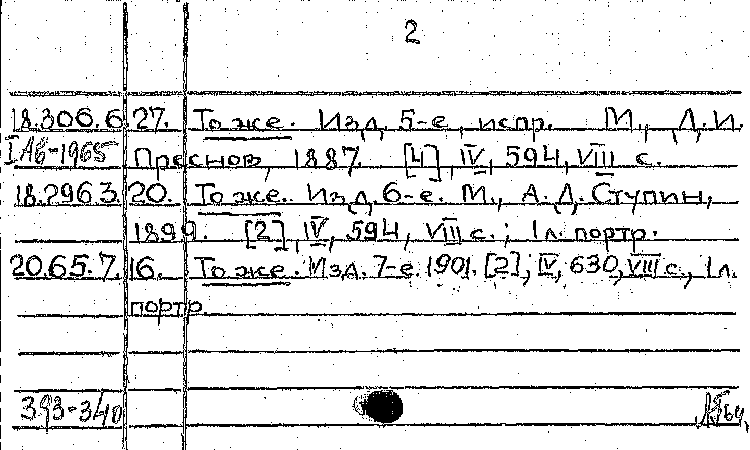 2
18.306.6.27. То же. Изд. 5-е, испр. М., Д.И.
IАб-1965 Преснов, 1887. [4], IV, 594, VIII с.
18.296.3.20. То же. Изд. 6-е. М., А.Д. Ступин,
1899. [2], IV, 594, VIII с.; 1 л. портр.
20.65.7.16. То же. Изд. 7-е. 1901. [2], IV, 630, VIII с., 1 л.
портр.
393-340